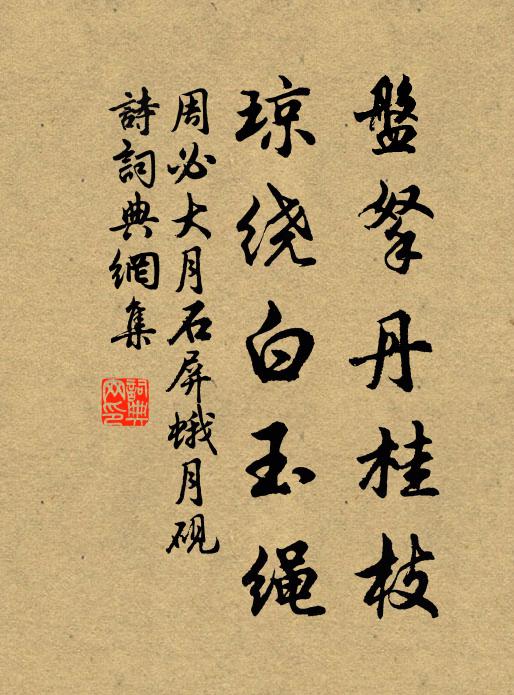 盤拏丹桂枝
琼绕白玉绳
周必大月石屏蛾月砚
詩詞典網集
詞典网印